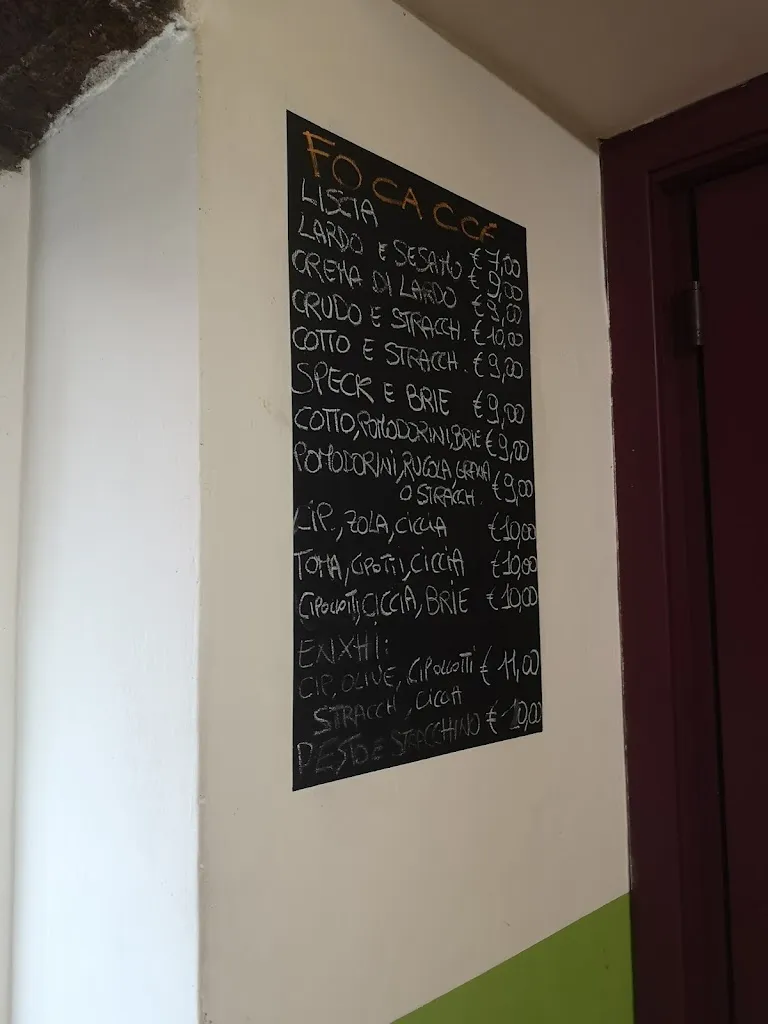 FOCACCE
LISCIA € 7,00
LARDO E SESAMO € 9,00
CREMA DI LARDO € 9,00
CRUDO E STRACCH. € 10,00
COTTO E STRACCH. € 9,00
SPECK E BRIE € 9,00
COTTO, POMODORINI, BRIE € 9,00
POMODORINI, RUCOLA, GRANA
O STRACCH. € 9,00
CIP., ZOLA, CICCIA € 10,00
TOMA, CIPOTTI, CICCIA € 10,00
CIPOLLOTTI, CICCIA, BRIE € 10,00
ENXHI:
CIP, OLIVE, CIPOLLOTTI € 11,00
STRACCH, CICCIA
PESTO E STRACCHINO € 10,00